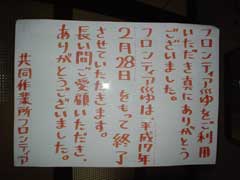 フロンティア巡ゆをご利用
いただき真にありがとう
ございました。
フロンティア巡ゆは、平成17年
2月28日をもって終了
させていただきます。
長い間ご愛顧いただき、
ありがとうございました。
共同作業所フロンティア